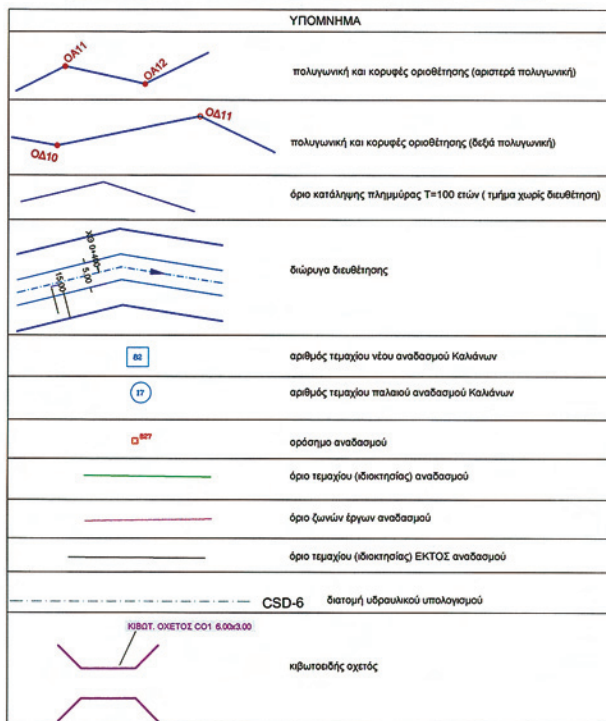 ΥΠΟΜΝΗΜΑ
ΟΑ11
ΟΑ12
πολυγωνική και κορυφές οριοθέτησης (αριστερά πολυγωνική)
ΟΔ10
ΟΔ11
πολυγωνική και κορυφές οριοθέτησης (δεξιά πολυγωνική)
όριο κατάληψης πλημμύρας Τ=100 ετών ( τμήμα χωρίς διευθέτηση)
5.00
15.00
διώρυγα διευθέτησης
αριθμός τεμαχίου νέου αναδασμού Καλιάνων
17
αριθμός τεμαχίου παλαιού αναδασμού Καλιάνων
827
ορόσημο αναδασμού
όριο τεμαχίου (ιδιοκτησίας) αναδασμού
όριο ζωνών έργων αναδασμού
όριο τεμαχίου (ιδιοκτησίας) ΕΚΤΟΣ αναδασμού
CSD-6
διατομή υδραυλικού υπολογισμού
ΚΙΒΩΤ. ΟΧΕΤΟΣ CO1 6.00x3.00
κιβωτοειδής οχετός